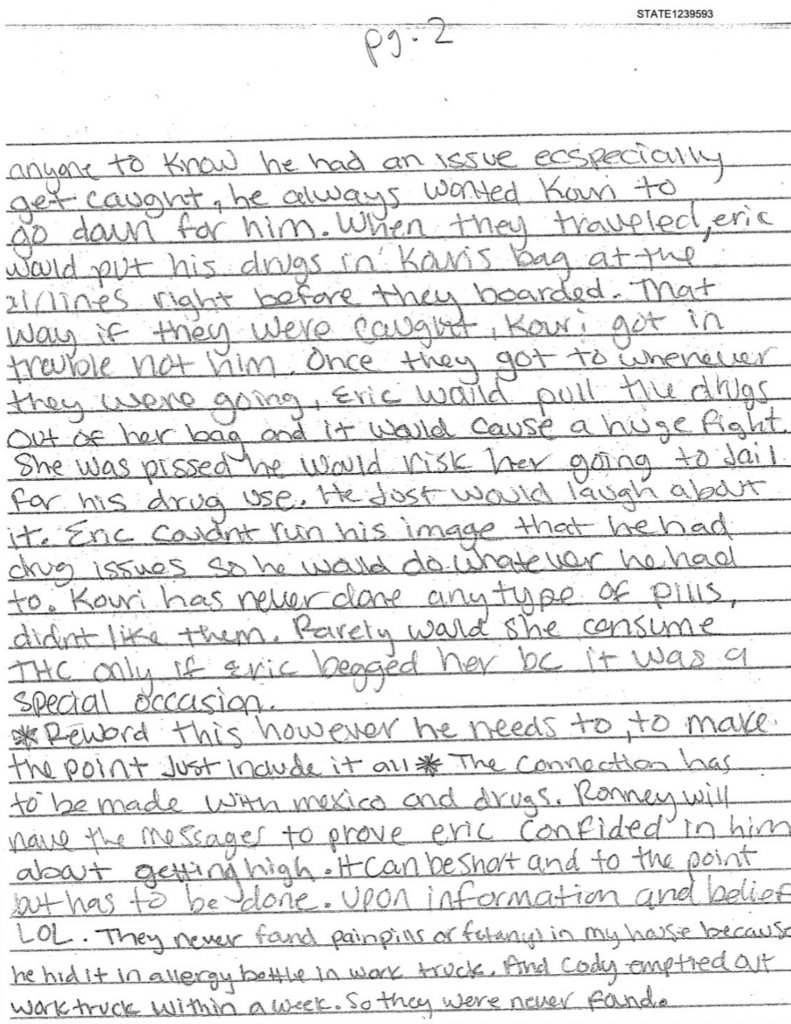 STATE1239593
pg. 2
anyone to know he had an issue ecspecially
get caught, he always wanted Kouri to
go down for him. When they traveled, eric
would put his drugs in Kouris bag at the
airlines right before they boarded. That
way if they were caught, Kouri got in
trouble not him. Once they got to whenever
they were going, Eric would pull the drugs
out of her bag and it would cause a huge fight.
She was pissed he would risk her going to Jail
for his drug use. He Just would laugh about
it. Eric couldnt ruin his image that he had
drug issues so he would do whatever he had
to. Kouri has never done any type of pills,
didnt like them. Rarely would she consume
THC only if eric begged her bc it was a
special occasion.
*Reword this however he needs to, to make
the point Just include it all* The connection has
to be made with mexico and drugs. Ronney will
have the messages to prove eric confided in him
about getting high. It can be short and to the point
but has to be done. Upon information and belief
LOL. They never found painpills or fetanyl in my house because
he hid it in allergy bottle in work truck. And Cody emptied out
work truck within a week. So they were never found.